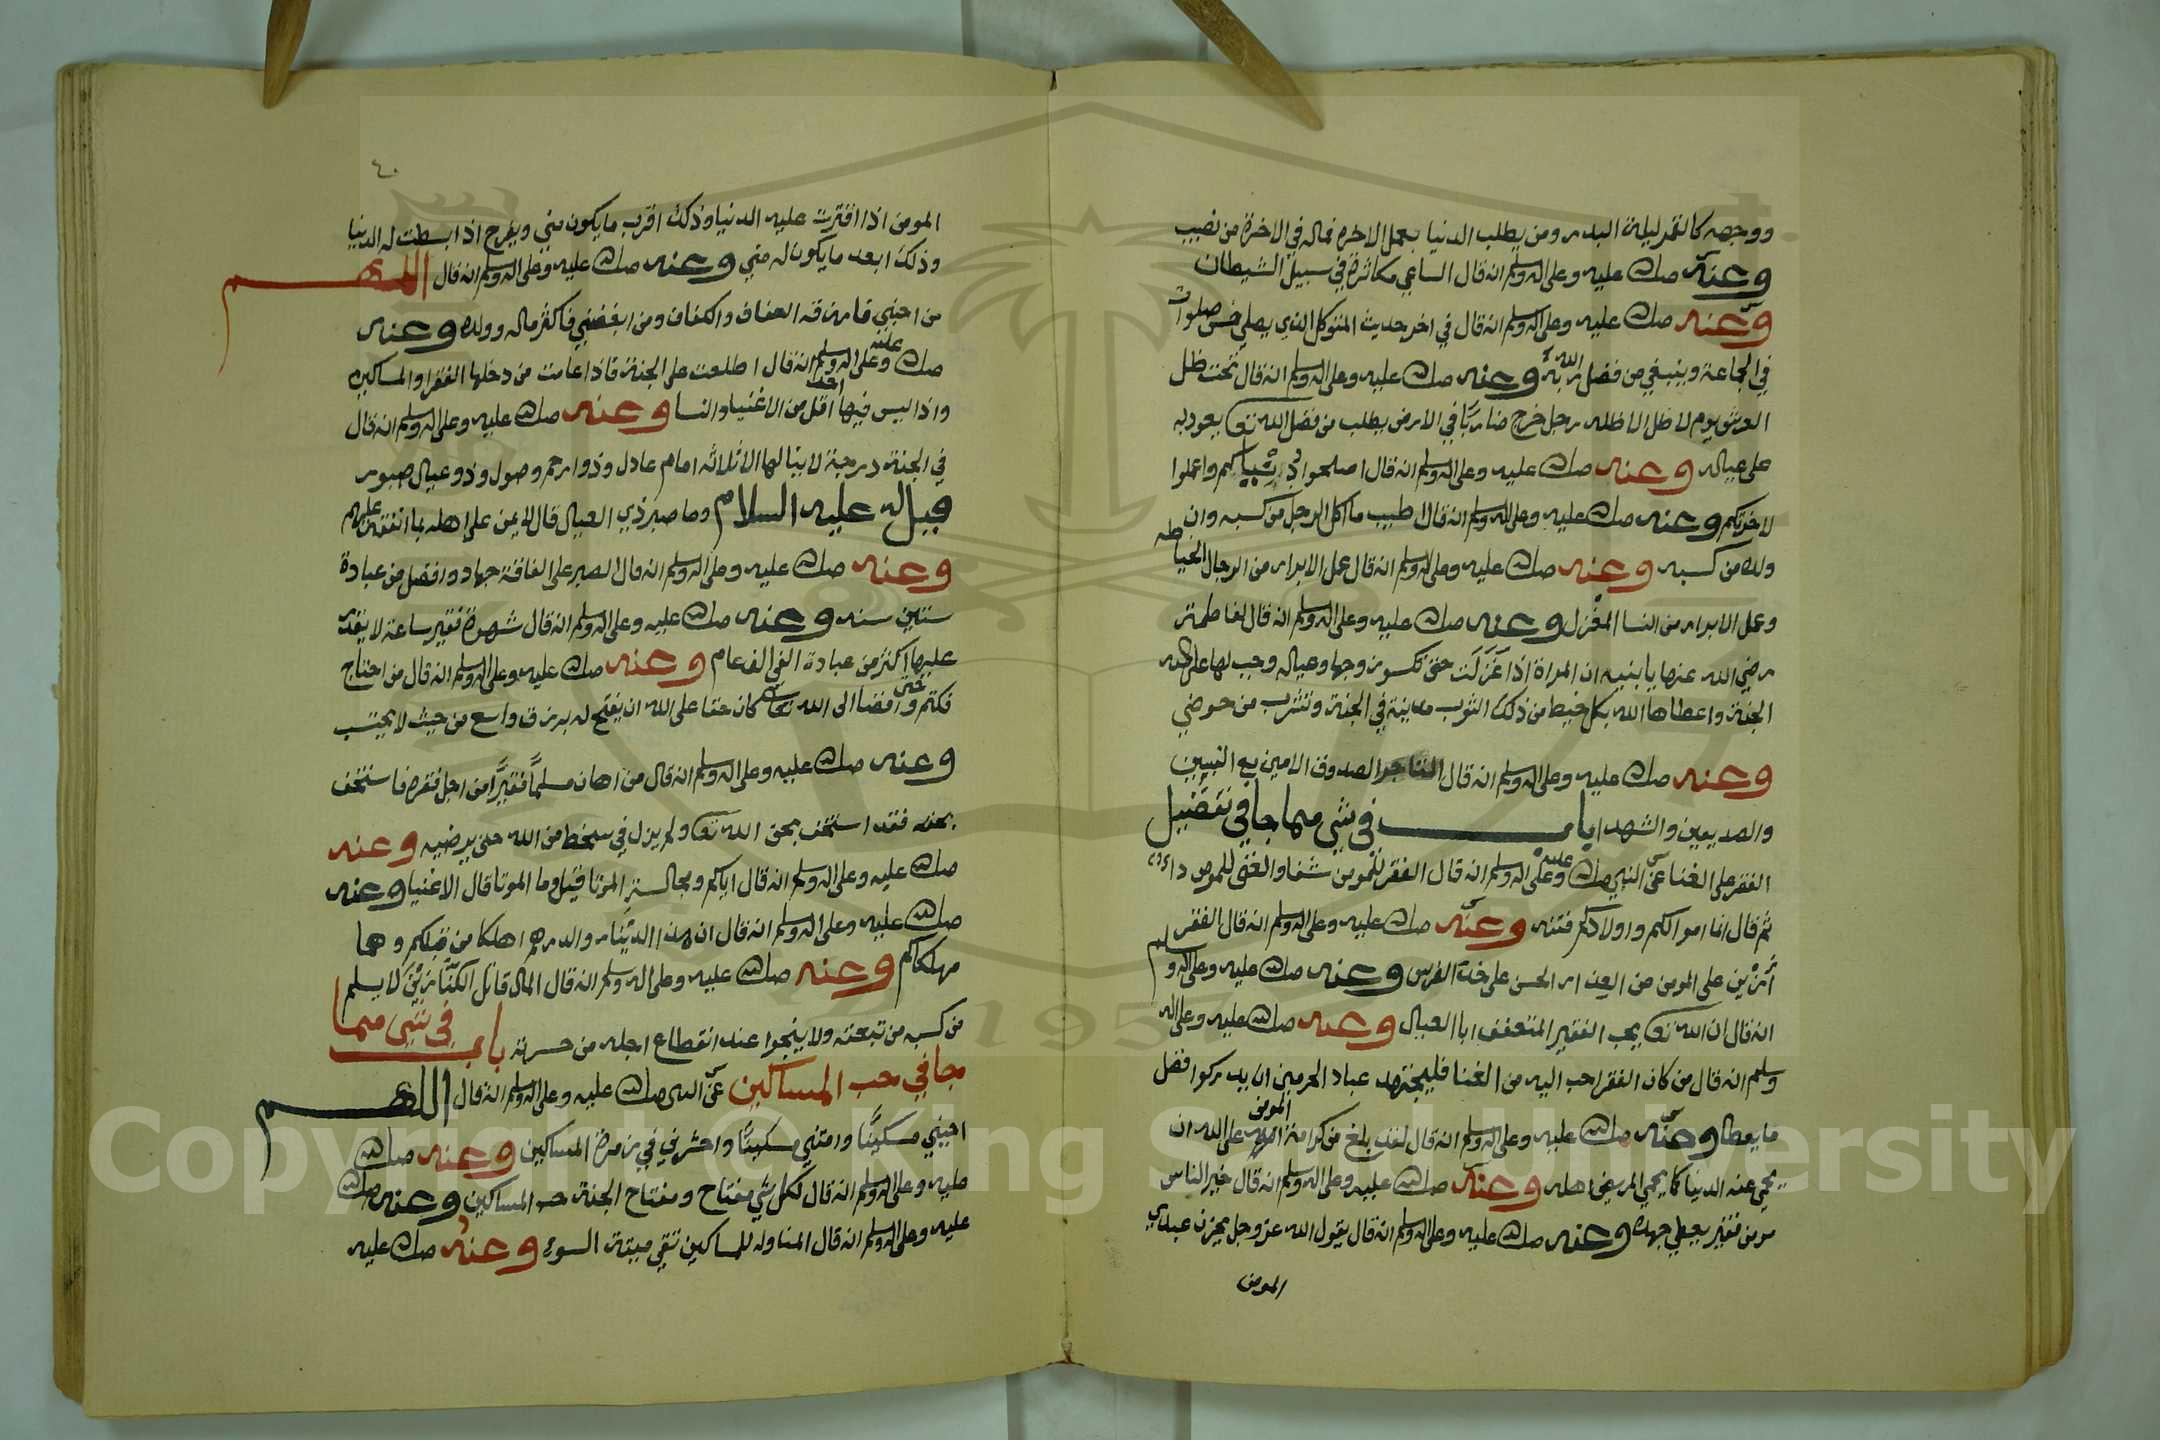 ووجهه كالقمر ليلة البدر ومن يطلب الدنيا بعمل الاخرة فماله في الاخرة من نصيب
وعنه صلى الله عليه وعلى اله وسلم انه قال الساعي مكاثرة في سبيل الشيطان
وعنه صلى الله عليه وعلى اله وسلم انه قال في اخر حديث المتوكل الذي يصلي خمس صلوات
في الجماعة ويبتغي من فضل الله ربه وعنه صلى الله عليه وعلى اله وسلم انه قال تحت ظل
العرش يوم لا ظل الا ظله رجل خرج ضاربًا في الارض يطلب من فضل الله تعا يعود به
على عياله وعنه صلى الله عليه وعلى اله وسلم انه قال اصلحوا دنياكم واعملوا
لاخرتكم وعنه صلى الله عليه وعلى اله وسلم انه قال اطيب ما اكل الرجل من كسبه وان
ولده من كسبه وعنه صلى الله عليه وعلى اله وسلم انه قال عمل الابرار من الرجال الخياطه
وعمل الابرار من النسا المغزل وعنه صلى الله عليه وعلى اله وسلم انه قال لفاطمة
رضي الله عنها يا بنيه ان المراة اذا غَزَلَت حتى تكسو زوجها وعياله وجب لها على الله
الجنة واعطاها الله بكل خيط من ذلك الثوب مدينة في الجنة وتشرب من حوضي
وعنه صلى الله عليه وعلى اله وسلم انه قال التاجر الصدوق الامين مع النبيين
والصديقين والشهدا باب في شي مما جا في تفضيل
الفقر على الغنا عن النبي صلى الله عليه وعلى اله وسلم انه قال الفقر للمومن شفا والغنى للمومن دا
ثم قال انما اموالكم واولادكم فتنه وعنه صلى الله عليه وعلى اله وسلم انه قال الفقر
أَزْين على المومن من العذار الحسن على خد الفرس وعنه صلى الله عليه وعلى اله وسلم
انه قال ان الله تعا يحب الفقير المتعفف ابا العيال وعنه صلى الله عليه وعلى اله
وسلم انه قال من كان الفقر احب اليه من الغنا فليجتهد عباد الحرمين ان يدركوا فضل
ما يعطا وعنه صلى الله عليه وعلى اله وسلم انه قال لقد بلغ من كرامة المومن على الله ان
يحمي عنه الدنيا كما يحمي المريض اهله وعنه صلى الله عليه وعلى اله وسلم انه قال خير الناس
مومن فقير يعطي جهده وعنه صلى الله عليه وعلى اله وسلم انه قال يقول الله عز وجل يحزن عبدي
المومن
٤٠
المومن اذا اقترت عليه الدنيا وذلك اقرب ما يكون مني ويفرح اذا بسطت له الدنيا
وذلك ابعد ما يكون له مني وعنه صلى الله عليه وعلى اله وسلم انه قال اللهم
من احبني فارزقه العفاف والكفاف ومن ابغضني فاكثر ماله وولده وعنه
صلى الله عليه وعلى اله وسلم انه قال اطلعت على الجنة فاذا عامت من دخلها الفقرا والمساكين
واذا ليس فيها احد اقل من الاغنيا والنسا وعنه صلى الله عليه وعلى اله وسلم انه قال
في الجنة درجة لا ينالها الا ثلاثه امام عادل وذوا رحم وصول وذو عيال صبور
قيل له عليه السلام وما صبر ذي العيال قال لا يمن على اهله بما انفق عليهم
وعنه صلى الله عليه وعلى اله وسلم انه قال الصبر على الفاقة جهاد وافضل من عبادة
ستين سنه وعنه صلى الله عليه وعلى اله وسلم انه قال شهوة فقير ساعة لا يقدر
عليها اكثر من عبادة الغني الف عام وعنه صلى الله عليه وعلى اله وسلم انه قال من احتاج
فكتم حتى افضا الى الله تعا كان حقا على الله ان يفتح له برزق واسع من حيث لا يحتسب
وعنه صلى الله عليه وعلى اله وسلم انه قال من اهان مسلمًا فقيرًا من اجل فقره فاستخف
بحقه فقد استخف بحق الله تعا ولم يزل في سخط من الله حتى يرضيه وعنه
صلى الله عليه وعلى اله وسلم انه قال اياكم ومجالسة الموتا قيل وما الموتا قال الاغنيا وعنه
صلى الله عليه وعلى اله وسلم انه قال ان هذا الدينار والدرهم اهلكا من قبلكم وهما
مهلكاكم وعنه صلى الله عليه وعلى اله وسلم انه قال المال قاتل الكنازين لا يسلم
من كسبه من تبعته ولا ينجوا عند انقطاع اجله من حسرته باب في شي مما
جا في حب المساكين عن النبي صلى الله عليه وعلى اله وسلم انه قال اللهم
احيني مسكينًا وامتني مسكينًا واحشرني في زمرة المساكين وعنه صلى الله
عليه وعلى اله وسلم انه قال لكل شي مفتاح ومفتاح الجنة حب المساكين وعنه صلى الله
عليه وعلى اله وسلم انه قال المناوله للمساكين تقي ميتة السوء وعنه صلى الله عليه
Copyright © King Saud University
1957